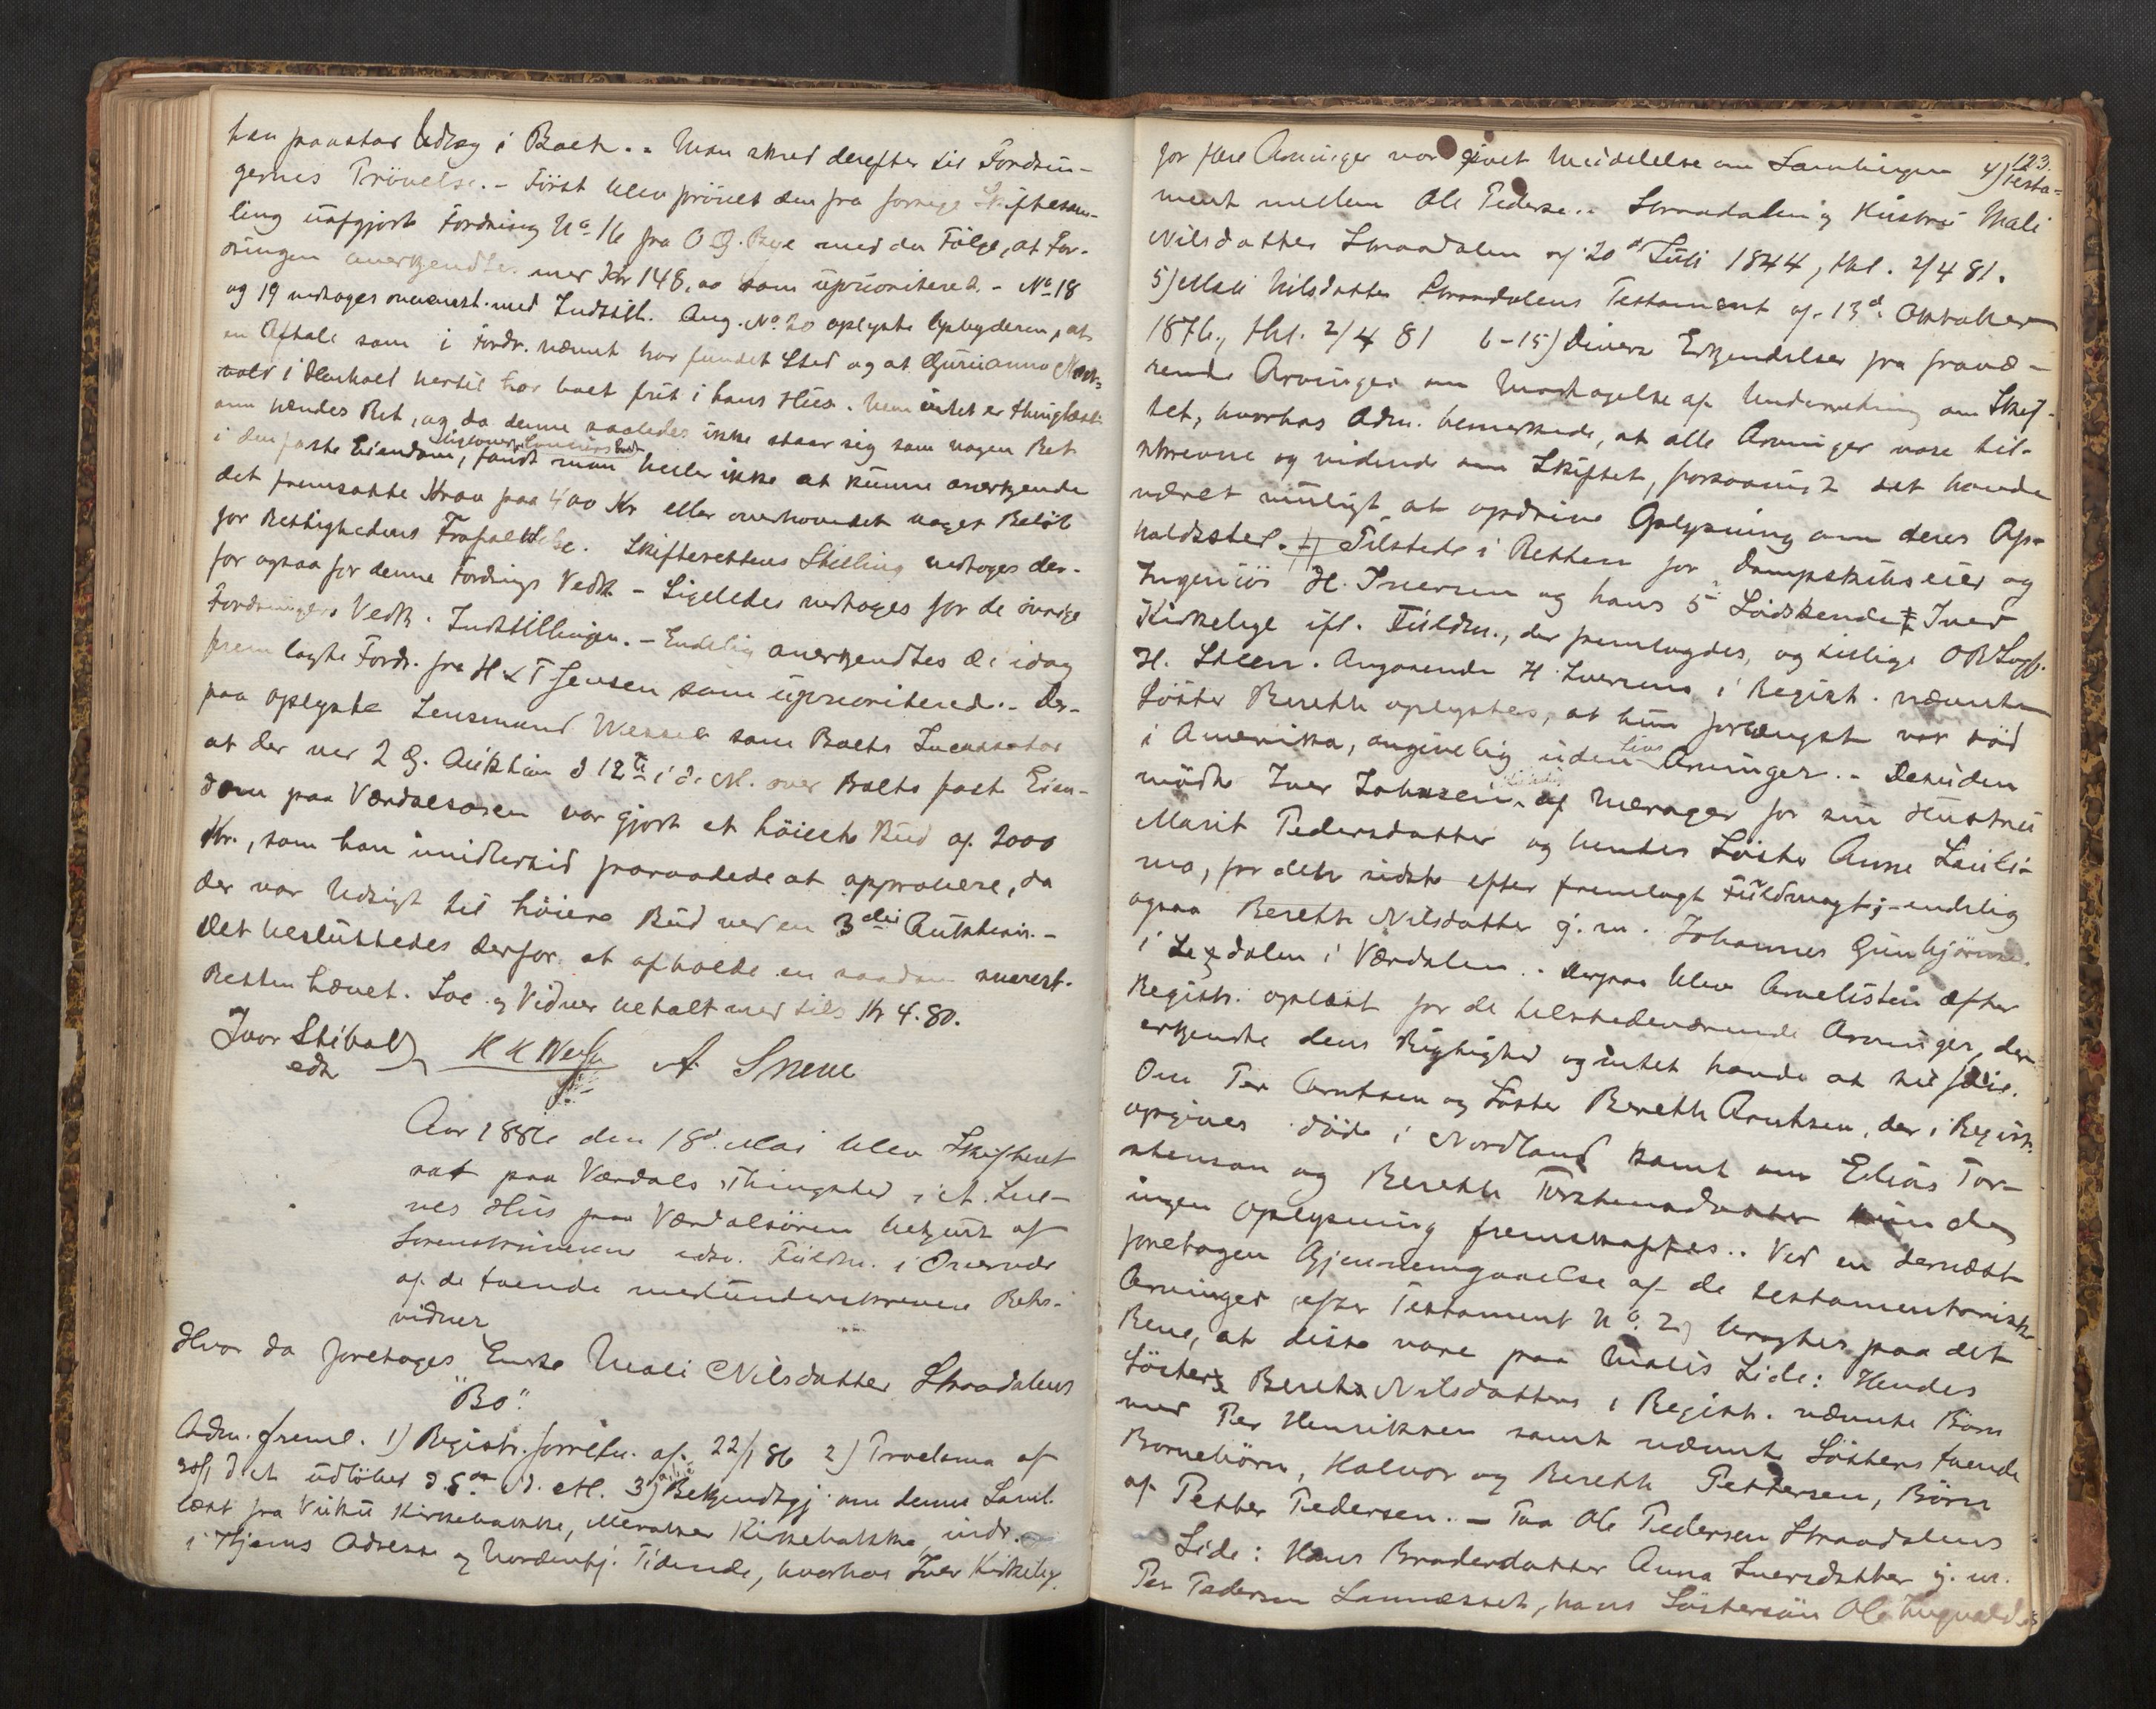 han paastar Udlæg i Boet. - Man skred derefter til Fordrin-
gernes Prövelse. - Först blev prövet den fra forrige Skiftesam-
ling uafgjort Fordring No 16 fra O G. Bye med den Fölge, at For-
dringen anerkjendtes med Kr 148,00 som uprioriteret. - No 18
og 19 vedtoges overenst. med Indstill. Ang. No 20 oplyste Opbyderen, at
en Aftale som i Fordr. nævnt har fundet Sted og at Gurianna
i Henhold hertil har boet frit i hans Hus. Men intet er thinglæst
om hendes Ret, og da denne saaledes ikke staar sig som nogen Ret
i den faste Eiendom, fandt man heller ikke at kunne anerkjende
det fremsatte Krav paa 400 Kr eller overhovedet noget Belöb
for Rettighedens Frafaldelse. Skifterettens Stilling vedtoges der-
for ogsaa for denne Fordrings Vedk. - Ligeledes vedtoges for de övrige
Fordringers Vedk. Indstillingen. - Endelig anerkjendtes de idag
fremlagte Fordr. fra H & T Jensen som uprioriterede. - Der-
paa oplyste Lensmand Wessel som Boets Incassator
at der ved 2 G. Auktion d 12te i d. M. over Boets faste Eien-
dom paa Værdalsören var gjort et höieste Bud af 2000
Kr., som han imidlertid fraraadede at approbere, da
der var Udsigt til höiere Bud ved en 3die Auktion. -
Det besluttedes derfor at afholde en saadan snarest.
Retten hævet. Loc. og Vidner betalt med tils. Kr 4.80.
Ivar Stibolt
edt
K K Wessel
A Sneve
Aar 1886 den 18d Mai blev Skifteret
sat paa Værdals Thingsted i A. Sne-
ves Hus paa Værdalsören betjent af
Sorenskriveren edsv. Fuldm. i Overvær
af de tvende medunderskrevne Rets-
vidner
Hvor da foretoges Enke Mali Nilsdatter Straadalens
"Bo".
Adm. freml. 1) Registr. forretn. af 22/1 86 2) Proclama af
d. A. udlöbet d. d. M. 3) Bekjendtgj. om denne Saml.
læst fra Vuku Kirkebakke, Meraker Kirkebakke, indr.
i Hjems Adresse og Nordenfj. Tidende, hvorhos Iver Kirkelig
123.
for flere Arvinger var givet Meddelelse om Samlingen 4) Testa-
ment mellem Ole Pedersen Straadalen og Hustru Mali
Nilsdatter Straadalen af 20d Juli 1844, thl. 2/4 81.
5) Mali Nilsdatter Straadalens Testament af 13d Oktober
1876, thl. 2/4 81 6-15) Diverse Erkjendelser fra fravæ-
rende Arvinger om Modtagelse af Underretning om Skif-
tet, hvorhos Adm. bemerkede, at alle Arvinger vare til-
skrevne og vidende om Skiftet, forsaavidt det havde
været muligt at opdrive Oplysning om deres Op-
holdssted. Tilstede i Retten for Dampskibseier og
Ingeniör H. Iversen og hans 5 Södskende Iver
Kirkelige ifl. Fuldm., der fremlagdes, og tillige ORSagf.
H. Steen. Angaaende H. Iversens i Registr. nævnte
Söster Berethe oplystes, at hun forlængst var död
i Amerika, angivelig uden Livs Arvinger. - Desuden
mödte Iver Johnsen af Meraker for sin Hustru
Marit Pedersdatter og hendes Söster Anne
mo, for den sidste efter fremlagt Fuldmagt; - endelig
ogsaa Berethe Nilsdatter g. m. Johannes Gunbjörnsen
i dalen i Værdalen. - Derpaa blev Arvelisten efter
Registr. oplæst for de tilstedeværende Arvinger, der
erkjendte dens Rigtighed og intet havde at tilföie.
Om Per Arntsen og Söster Berethe Arntsen, der i Registr.
opgives döde i Nordland samt om Elias Tor-
stensen og Berethe Torstensdatter kunde
ingen Oplysning fremskaffes. - Ved en dernæst
foretagen Gjennemgaaelse af de testamentariske
Arvinger efter Testament No. 2) bragtes paa det
Rene, at disse vare paa Malis Side: Hendes
Sösters Berethe Nilsdatters i Registr. nævnte Börn
med Per Henriksen samt nævnte Sösters tvende
Börnebörn, Halvor og Berethe Pettersen, Börn
af Petter Pedersen. - Paa Ole Pedersen Straadalens
Side: Hans Broderdatter Anna Iversdatter g. m.
Per Pedersen, hans Söstersön Ole